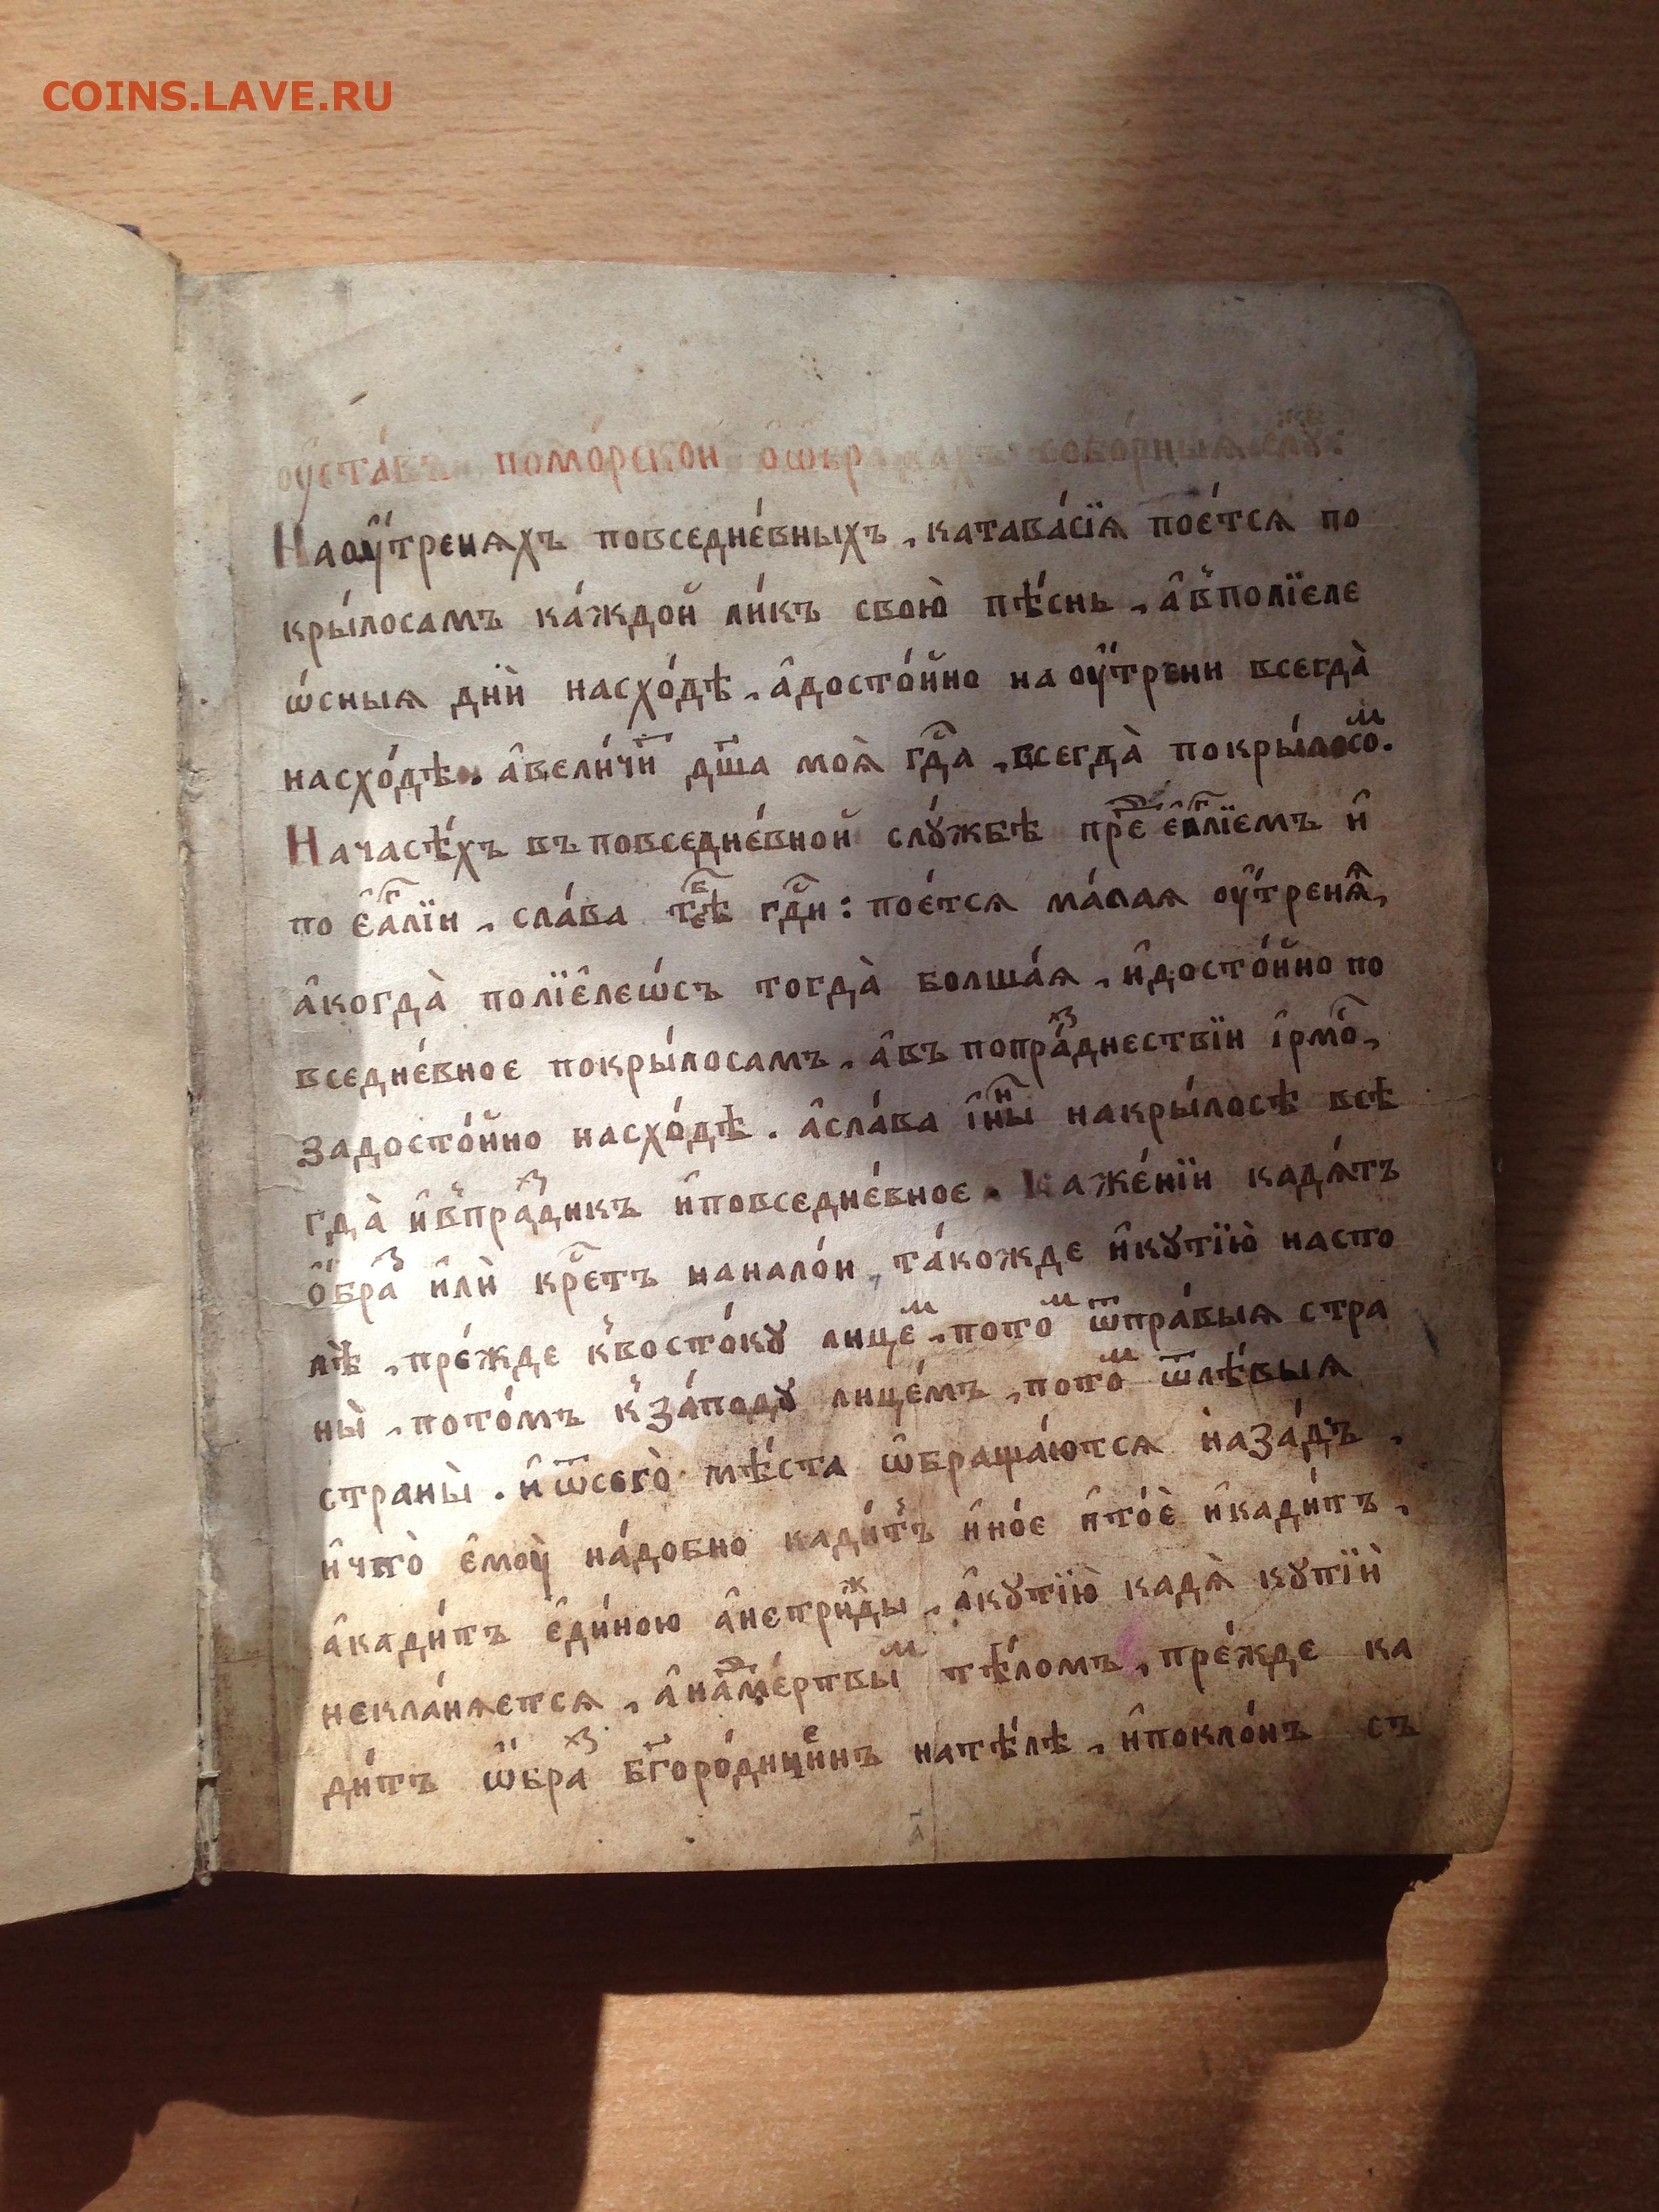 COINS.LAVE.RU
оуста́въ помо́рской собо́рныя слу́ж:
На оу҆́треняхъ повседне́вныхъ, катава́сїя пое́тся по
кры́лосамъ ка́ждой ли́къ свою̀ пѣ́снь, а҆в̾полїеле
ѡ́сныя дни̑ насхо́дѣ, а҆досто́йно на оу҆́трени всегда̀
насхо́дѣ. а҆вели́чи́т дш҃а моя̀ гдⷭ҇а, всегда̀ покры́лосоⷨ.
Начасѣ́хъ въ повседне́вной слу́жбѣ преⷣ є҆ѵⷢ҇лїемъ и҆
по є҆ⷢ҇алїи, сла́ва тⷠе҇ѣ гдⷭ҇и: пое́тся ма́лая оу҆́треня̑,
а҆когда̀ полїе҆леѡ́съ тогда̀ болша́я, и҆досто́йно по
вседне́вное покры́лосамъ, а҆въ попраⷥ҇днествїи і҆рмоⷭ҇,
задосто́йно насхо́дѣ. а҆сла́ва і҆ны́ⷩ накры́лосѣ всѣ
гда̀ и҆в̾праⷥ҇дникъ и҆повседне́вное. Каже́нїи кадя́тъ
о҆́браⷥ и҆лѝ крⷭ҇етъ наналои́, та́кожде и҆кꙋтїю̀ наспо
лѣ̀, пре́жде к̾восто́кꙋ лице́ⷨ, потоⷨ ѿпра́выя стра
ны̀, пото́мъ к̾за́подꙋ лице́мъ, потоⷨ ѿлѣ́выя
страны̀. и҆ѿсего̀ мѣ́ста ѡ҆браща́ются наза́дъ,
и҆что̀ є҆моу̀ на́добно кади́т̾ъ и҆но́е и҆то́ѐ и҆кади́тъ,
а҆кади́тъ є҆ди́ною а҆нетри́ⷤды, а҆кꙋтїю̀ кадя̀ кꙋтїѝ
некла́няется, а҆наⷣме́ртвыⷨ тѣ́ломъ, пре́жде ка
ди́тъ ѡ҆́браⷥ бг҃оро́дицⷺинъ натѣ́лѣ, и҆покло́нъ съ